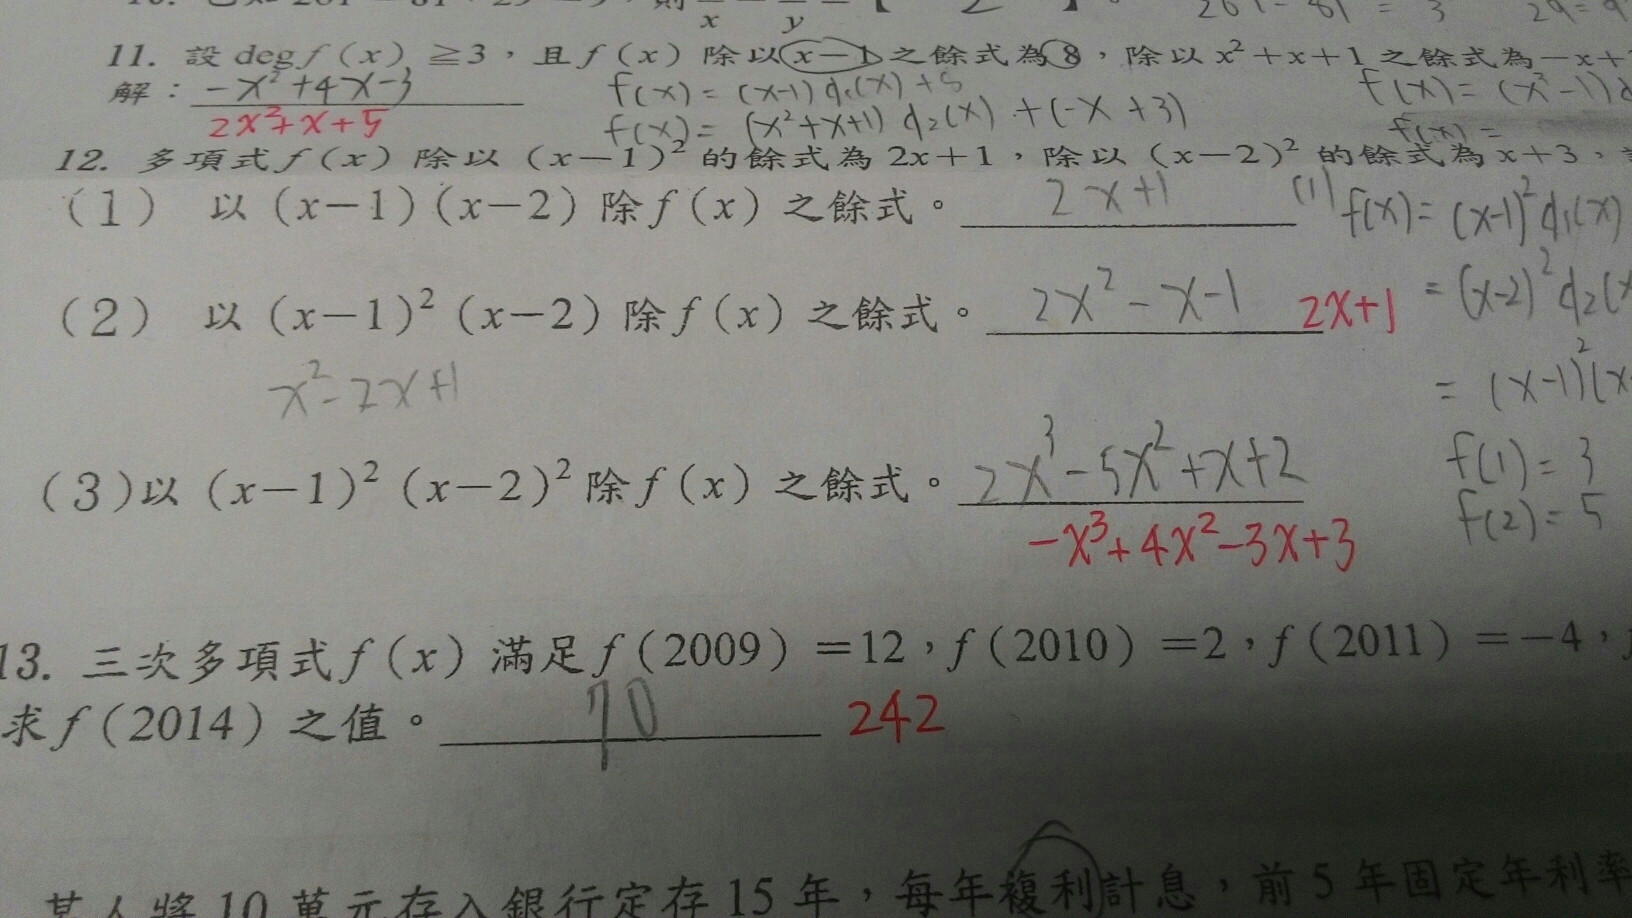 11. 設 deg f(x) ≧3，且 f(x) 除以 x−1 之餘式為 8，除以 x²+x+1 之餘式為 −x+
解：−x²+4x−3 f(x) = (x-1) q₁(x) + 5 f(x) = (x³-1)
2x²+x+5 f(x) = (x²+x+1) q₂(x) + (-x+3) f(x) =
12. 多項式 f(x) 除以 (x−1)² 的餘式為 2x+1，除以 (x−2)² 的餘式為 x+3，
(1) 以 (x−1)(x−2) 除 f(x) 之餘式。 2x+1 (1) f(x) = (x-1)² q₁(x)
(2) 以 (x−1)² (x−2) 除 f(x) 之餘式。 2x²-x-1 2x+1 = (x-2)² q₂(x
x²-2x+1 = (x-1)²(x-
f(1) = 3
(3)以 (x−1)² (x−2)² 除 f(x) 之餘式。 2x³-5x²+x+2 f(2) = 5
-x³+4x²-3x+3
13. 三次多項式 f(x) 滿足 f(2009) =12，f(2010) =2，f(2011) =−4，
求 f(2014) 之值。 70 242
某人將 10 萬元存入銀行定存 15 年，每年複利計息，前 5 年固定年利率